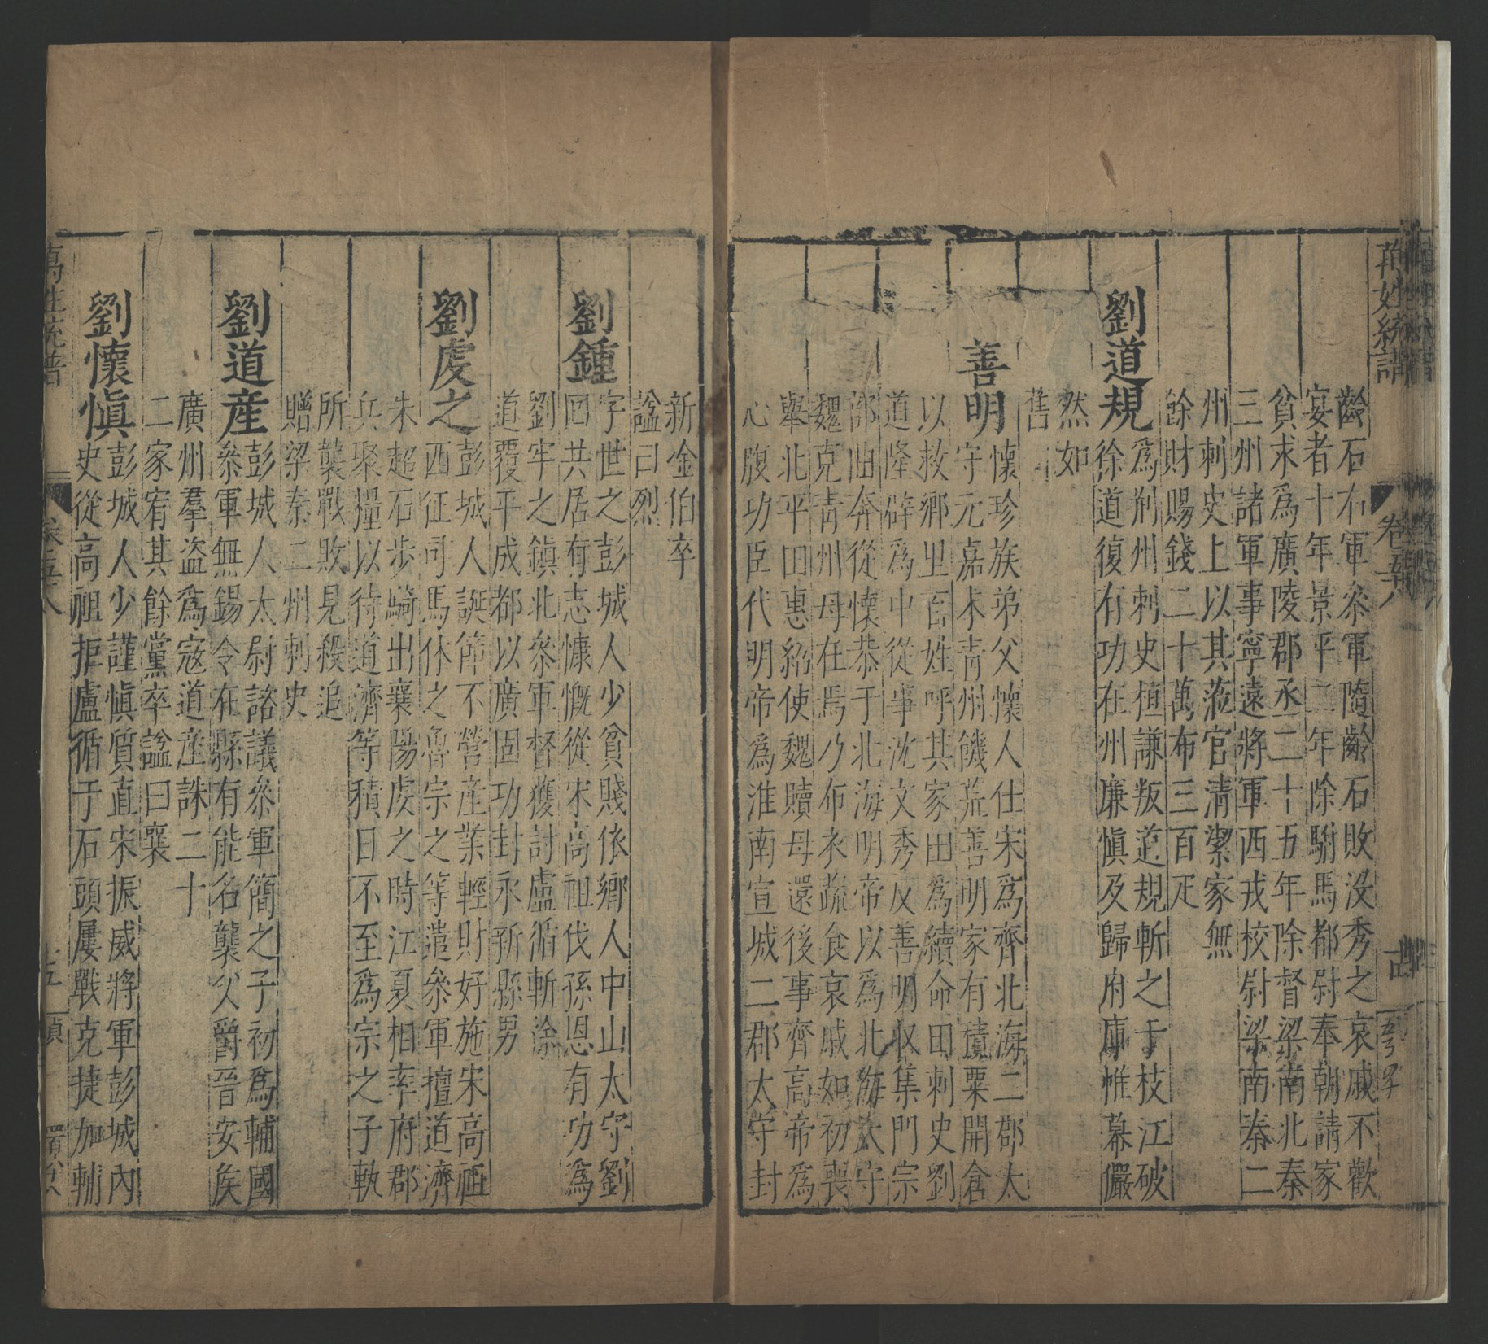 萬姓統譜 卷五十八
齡石右軍叅軍隨齡石敗没秀之哀戚不歡
宴者十年景平二年除駙馬都尉奉朝請家
貧求爲廣陵郡丞二十五年除督梁南北秦
三州諸軍事寧遠將軍西戎校尉梁南秦二
州刺史上以其涖官清潔家無
餘財賜錢二十萬布三百疋
劉道規
爲荆州刺史桓謙叛道規斬之于枝江破
徐道復有功在州廉愼及歸府庫帷幕儼
然如
舊
善明
懷珍族弟父懷人仕宋爲齊北海二郡太
守元嘉末青州饑荒善明家有積粟開倉
以救鄉里百姓呼其家田爲續命田刺史劉
道隆辟爲中從事沈文秀反善明收集門宗
部曲奔從懷恭于北海明帝以爲北海太守
魏克青州母在焉乃布衣蔬食哀戚如初喪
舉北平田惠紹使魏贖母還後事齊高帝爲
心腹功臣代明帝爲淮南宣城二郡太守封
新金伯卒
諡曰烈
劉鍾
字世之彭城人少貧賤依鄉人中山太守劉
回共居有志慷慨從宋高祖伐孫恩有功爲
劉牢之鎮北叅軍督䕶討盧循斬徐
道覆平成都以廣固功封永新縣男
劉虔之
彭城人誕節不營産業輕財好施宋高祖
西征司馬休之魯宗之等遣叅軍檀道濟
朱超石步騎出襄陽虔之時江夏相率府郡
兵聚糧以待道濟等積日不至爲宗之子軌
所襲戰敗見殺追
贈梁秦二州刺史
劉道産
彭城人太尉諮議叅軍簡之子初爲輔國
叅軍無錫令在縣有能名襲父爵晉安侯
廣州羣盗爲寇道産誅二十
二家宥其餘黨卒諡曰襄
劉懷愼
彭城人少謹愼質直宋振威將軍彭城內
史從高祖拒盧循于石頭屢戰克捷加輔